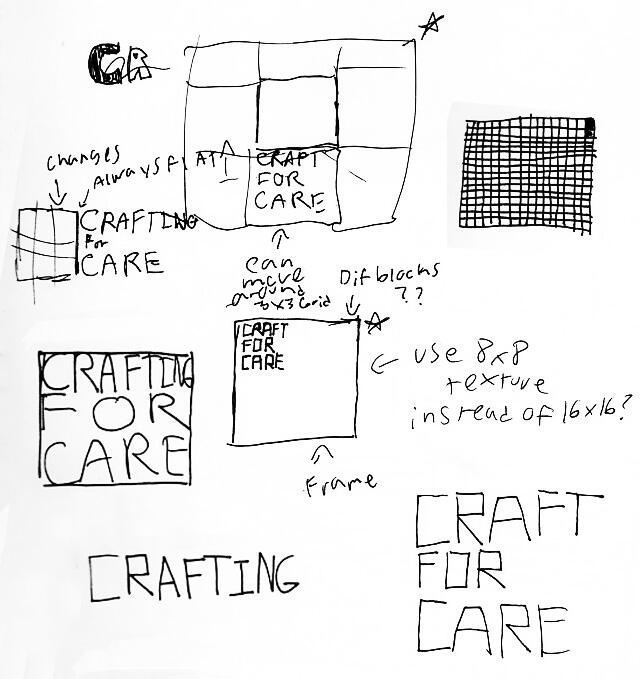 CRAFT
FOR
CARE
changes
Always FLAT
CRAFTING
For
CARE
can
move
around
3x3 Grid
Dif blocks
??
CRAFT
FOR
CARE
use 8x8
texture
instead of 16x16?
Frame
CRAFTING
FOR
CARE
CRAFTING
CRAFT
FOR
CARE